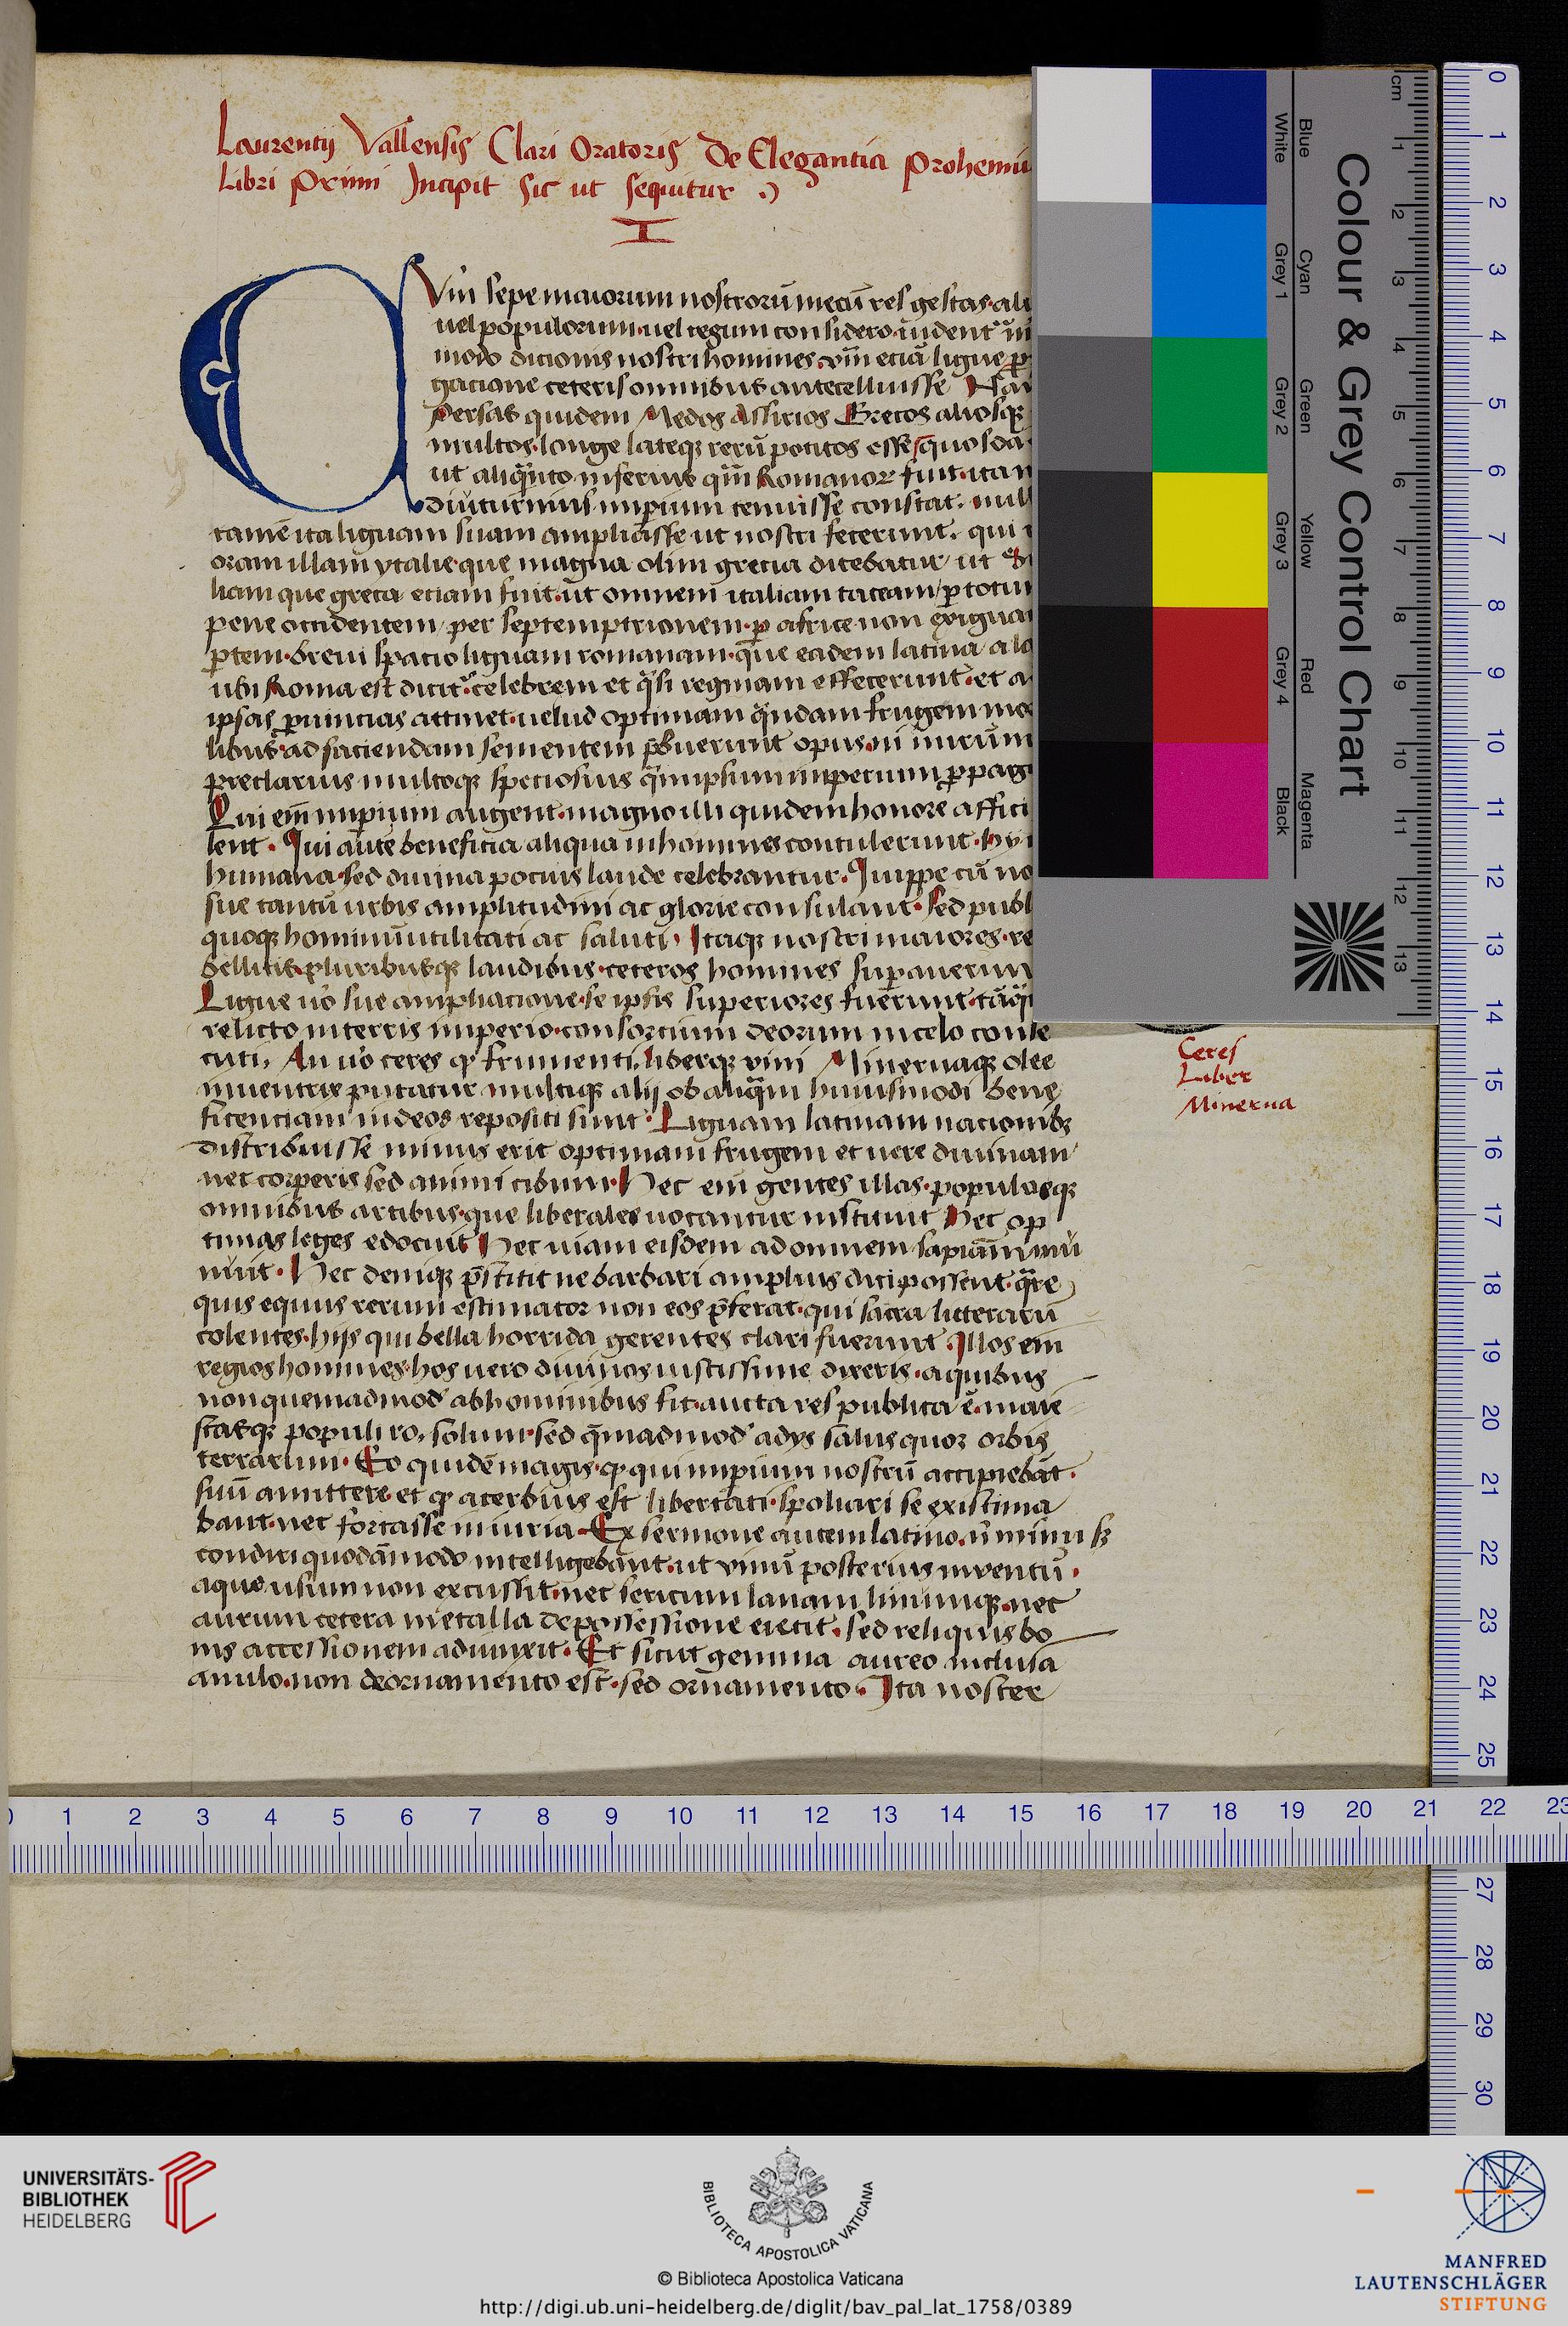 Laurentij Vallensis Clari Oratoris De Elegantia Prohemiu
Libri Primi Incipit sic ut sequitur
I
CVm sepe maiorum nostrorū mecū res gestas
uel populorum uel regum considero uident͛
modo dicionis nostri homines uȓm eciā ligue
gacione ceteris omnibus antecelluisse Nā
Persas quidem Medos Assirios Grecos aliosqȝ
multos longe lateqȝ rerū potitos esse quosdā
ut aliqn̄to inferius qm̄ Romanorꝝ fuit ita
diuturnius imꝑium tenuisse constat. null
tamē ita liguam suam ampliasse ut nostri fecerunt. qui
oram illam ytalie que magna olim grecia dicebatur ut
liam que greca etiam fuit ut omnem italiam taceam ꝑ totum
pene occidentem per septemptrionem ꝑ africe non exiguam
ꝑtem breui spacio liguam romanam que eadem latina a
ubi Roma est dicit͛ celebrem et q̄si reginam effecerunt et
ipsas ꝓuincias attinet uelud optimam q̄ndam frugem mor
libus ad faciendam sementem p̄buerunt opus ni mirum
preclarius multoqȝ speciosius q̄m ipsum imperium ꝓpag
Qui em̄ imꝑium augent magno illi quidem honore affici
lent. Qui aūte beneficia aliqua in homines contulerunt hy
humana sed diuina potius laude celebrantur. Quippe cū no
sue tantū urbis amplitudini ac glorie consulant sed publ
quoqȝ hominū utilitati ac saluti. Itaqȝ nostri maiores re
bellicis pluribusqȝ laudibus ceteros homines suꝑauerunt
Ligue uo͛ sue ampliacione se ipsis superiores fuerunt tāq̄
relicto in terris imperio consortium deorum in celo conse
cuti. An uo͛ ceres qꝫ frumenti liberqȝ vini Mineruaqȝ olee
inuentrix putatur multiqȝ alij ob aliq̄m huiusmodi bene
ficenciam in deos repositi sunt. Liguam latinam nacionibȝ
distribuisse minus erit optimam frugem et uere diuinam
nec corperis sed animi cibum. Hec em̄ gentes illas populosqȝ
omnibus artibus que liberales uocantur instituit Hec op
timas leges edocuit Hec uiam eisdem ad omnem sapiāam mū
niuit. Hec deniqȝ p̄stitit ne barbari amplius dici possent q̄re
quis equus rerum estimator non eos p̄ferat qui sacra litterarū
colentes hijs qui bella horrida gerentes clari fuerunt. Illos em̄
regios homines hos uero diuinos iustissime dixeris a quibus
non quemadmod͛ ab hominibus fit aucta res publica ē maie
stasqȝ populi ro. solum sed q̄madmod͛ a dys salus quoꝫ orbis
terrarum. Eo quidē magis qꝫ qui imꝑium nostrū accipiebāt.
suū amittere et qꝫ acerbius est libertati spoliari se existima
bant nec fortasse iniuria. Ex sermone autem latino n̄ minui sȝ
condiri quodāmodo intelligebānt ut vinū posterius inuentū.
aque usum non excussit nec sericum lanam linumqȝ nec
aurum cetera metalla de possessione eiecit. sed reliquis bo
nis accessionem adiunxit. Et sicut gemma aureo inclusa
anulo non deornamento est sed ornamento. Ita noster
Ceres
Liber
Minerua
Colour & Grey Control Chart
Blue Cyan Green Yellow Red Magenta
White Grey 1 Grey 2 Grey 3 Grey 4 Black
cm 1 2 3 4 5 6 7 8 9 10 11 12 13
0 1 2 3 4 5 6 7 8 9 10 11 12 13 14 15 16 17 18 19 20 21 22 23 24 25 27 28 29 30
0 1 2 3 4 5 6 7 8 9 10 11 12 13 14 15 16 17 18 19 20 21 22 23
UNIVERSITÄTS-
BIBLIOTHEK
HEIDELBERG
BIBLIOTECA APOSTOLICA VATICANA
© Biblioteca Apostolica Vaticana
http://digi.ub.uni-heidelberg.de/diglit/bav_pal_lat_1758/0389
MANFRED
LAUTENSCHLÄGER
STIFTUNG